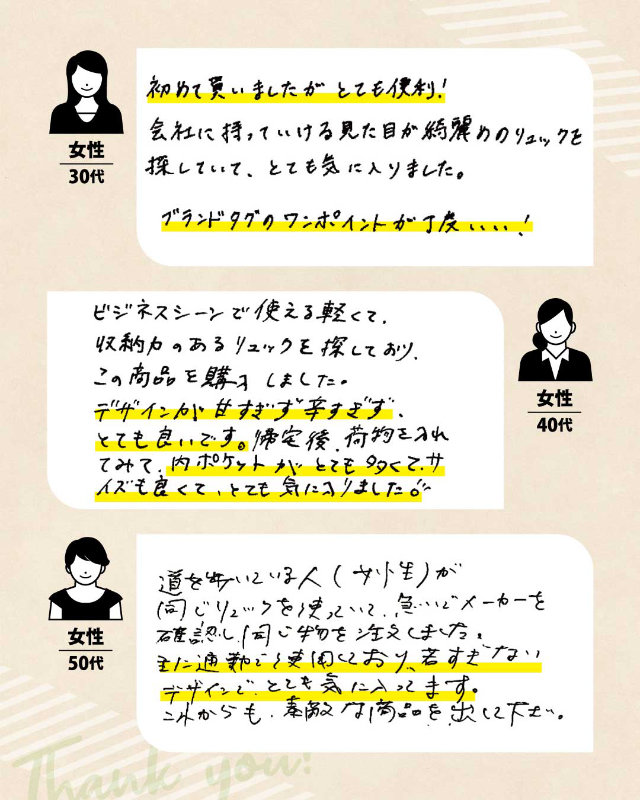 初めて買いましたが とても便利!
会社に持っていける見た目が綺麗めのリュックを
探していて、とても気に入りました。
ブランドタグのワンポイントが丁度いい!
女性
30代
ビジネスシーンで使える軽くて、
収納力のあるリュックを探しており、
この商品を購入しました。
デザインが甘すぎず辛すぎず、
とても良いです。帰宅後、荷物を入れ
てみて、内ポケットがとても多くて、サ
イズも良くて、とても気に入りました。
女性
40代
道を歩いている人(女性)が
同じリュックを使っていて、急いでメーカーを
確認し同じ物を注文しました。
主に通勤で使用しており、若すぎない
デザインで、とても気に入ってます。
これからも、素敵な商品を出して下さい。
女性
50代
Thank you!